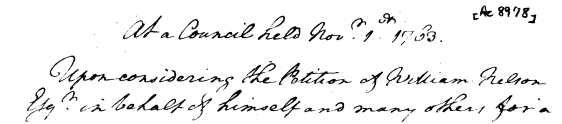 [Ac 8978]
At a Council held Novr. 1st. 1763.
Upon considering the Petition of William Nelson
Esqr. in behalf of himself and many others, for a